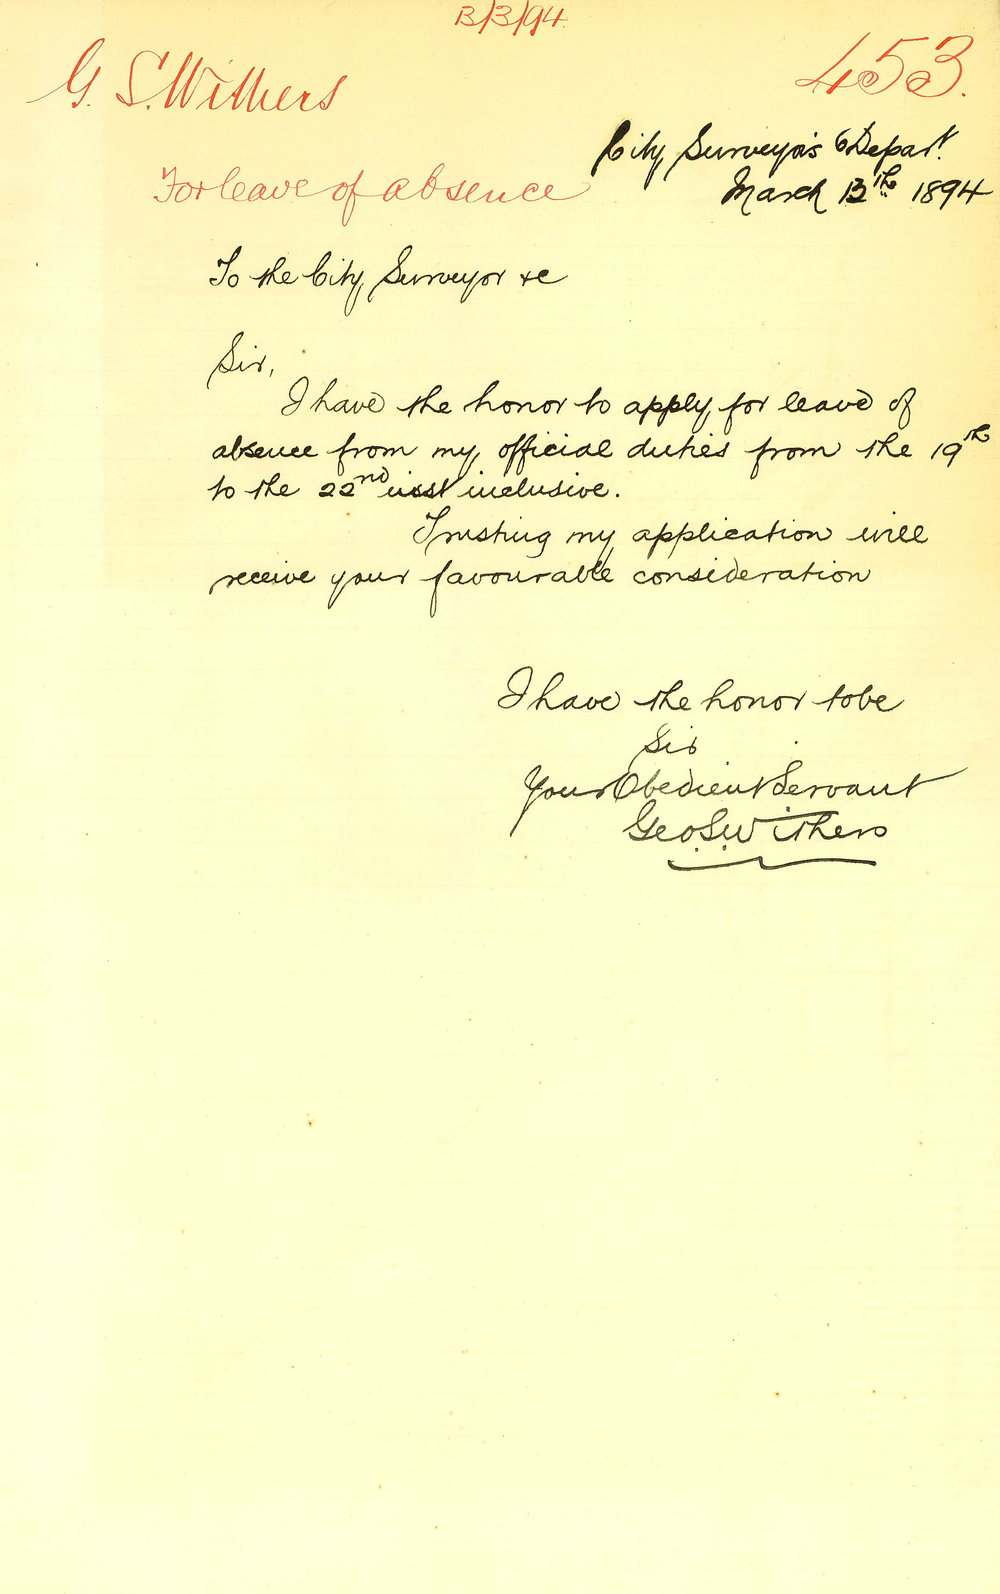 13/3/94.
G. S. Withers
453.
For leave of absence
City Surveyor's Depart.
March 13th 1894
To the City Surveyor &c
Sir,
I have the honor to apply for leave of
absence from my official duties from the 19th
to the 22nd inst inclusive.
Trusting my application will
receive your favourable consideration
I have the honor to be
Sir
Your Obedient Servant
Geo. S. Withers